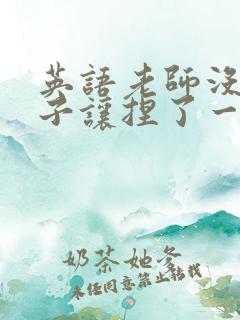 英語老師沒
子讓捏了一
奶茶她爸
未经同意禁止转载